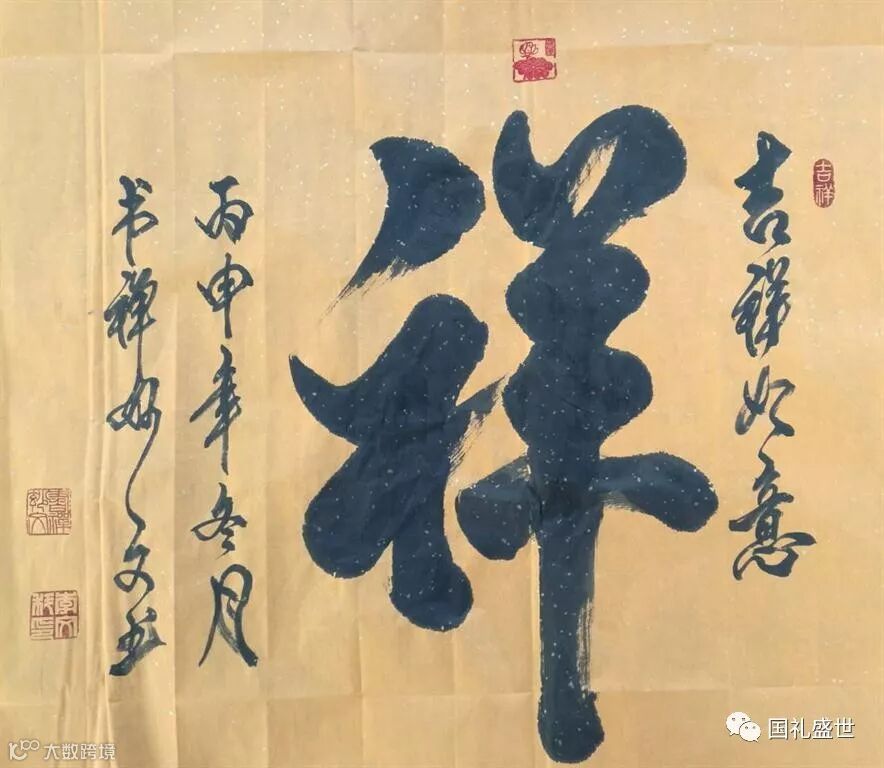 吉祥如意
吉祥
祥
丙申年冬月
书禅妙文书
国礼盛世
大数跨境